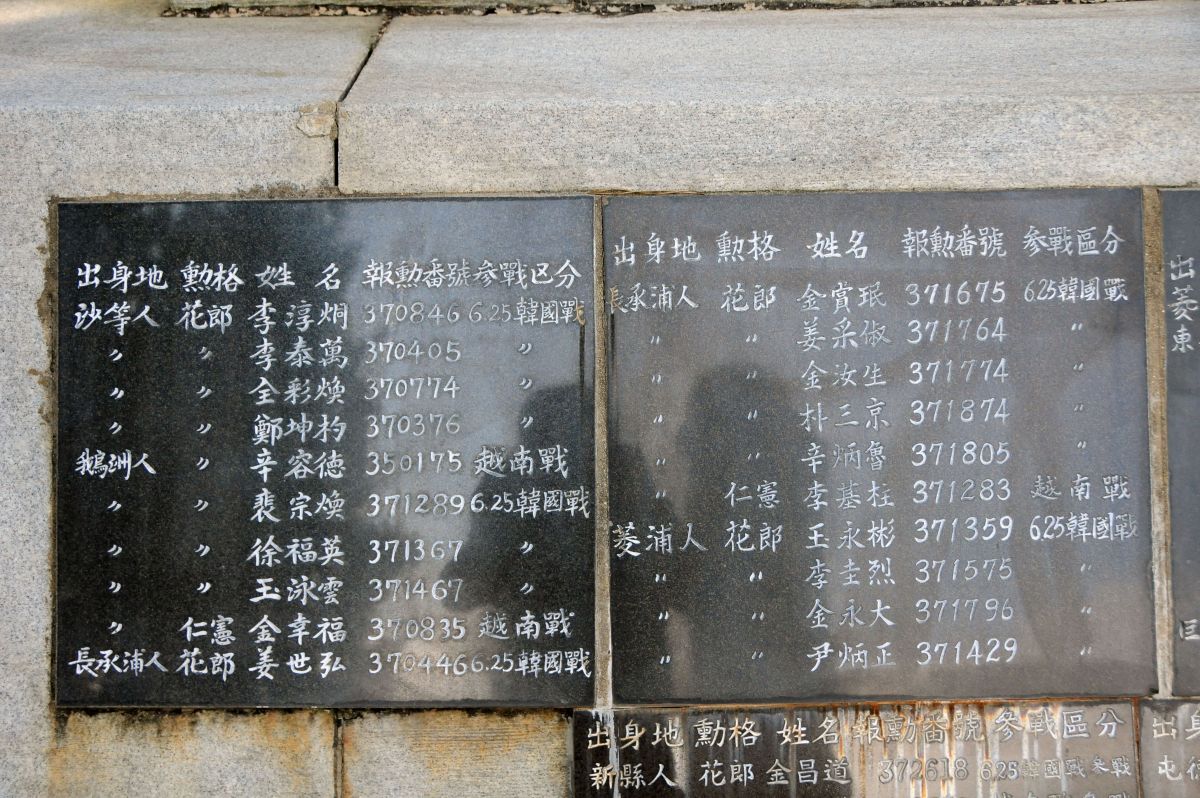 出身地 勲格 姓名 報勲番號 參戰区分
沙等人 花郎 李淳炯 370846 6.25韓國戰
〃 〃 李泰萬 370405 〃
〃 〃 全彩煥 370774 〃
〃 〃 鄭坤杓 370376
鵝洲人 〃 辛容德 350175 越南戰
〃 〃 裵宗煥 371289 6.25韓國戰
〃 〃 徐福英 371367 〃
〃 〃 玉泳雲 371467 〃
〃 仁憲 金幸福 370835 越南戰
長承浦人 花郎 姜世弘 370446 6.25韓國戰
出身地 勲格 姓名 報勲番號 參戰區分
長承浦人 花郎 金賞珉 371675 6.25韓國戰
〃 〃 姜采俶 371764 〃
〃 〃 金汝生 371774 〃
〃 〃 朴三京 371874 〃
〃 〃 辛炳魯 371805 〃
〃 仁憲 李基柱 371283 越南戰
菱浦人 花郎 王永彬 371359 625韓國戰
〃 〃 李圭烈 371575 〃
〃 〃 金永大 371796 〃
〃 〃 尹炳正 371429 〃
出
菱
東
巨
出身地 勲格 姓名 報勲番號 參戰區分
新縣人 花郎 金昌道 372618 6.25韓國戰參戰
出身
屯德